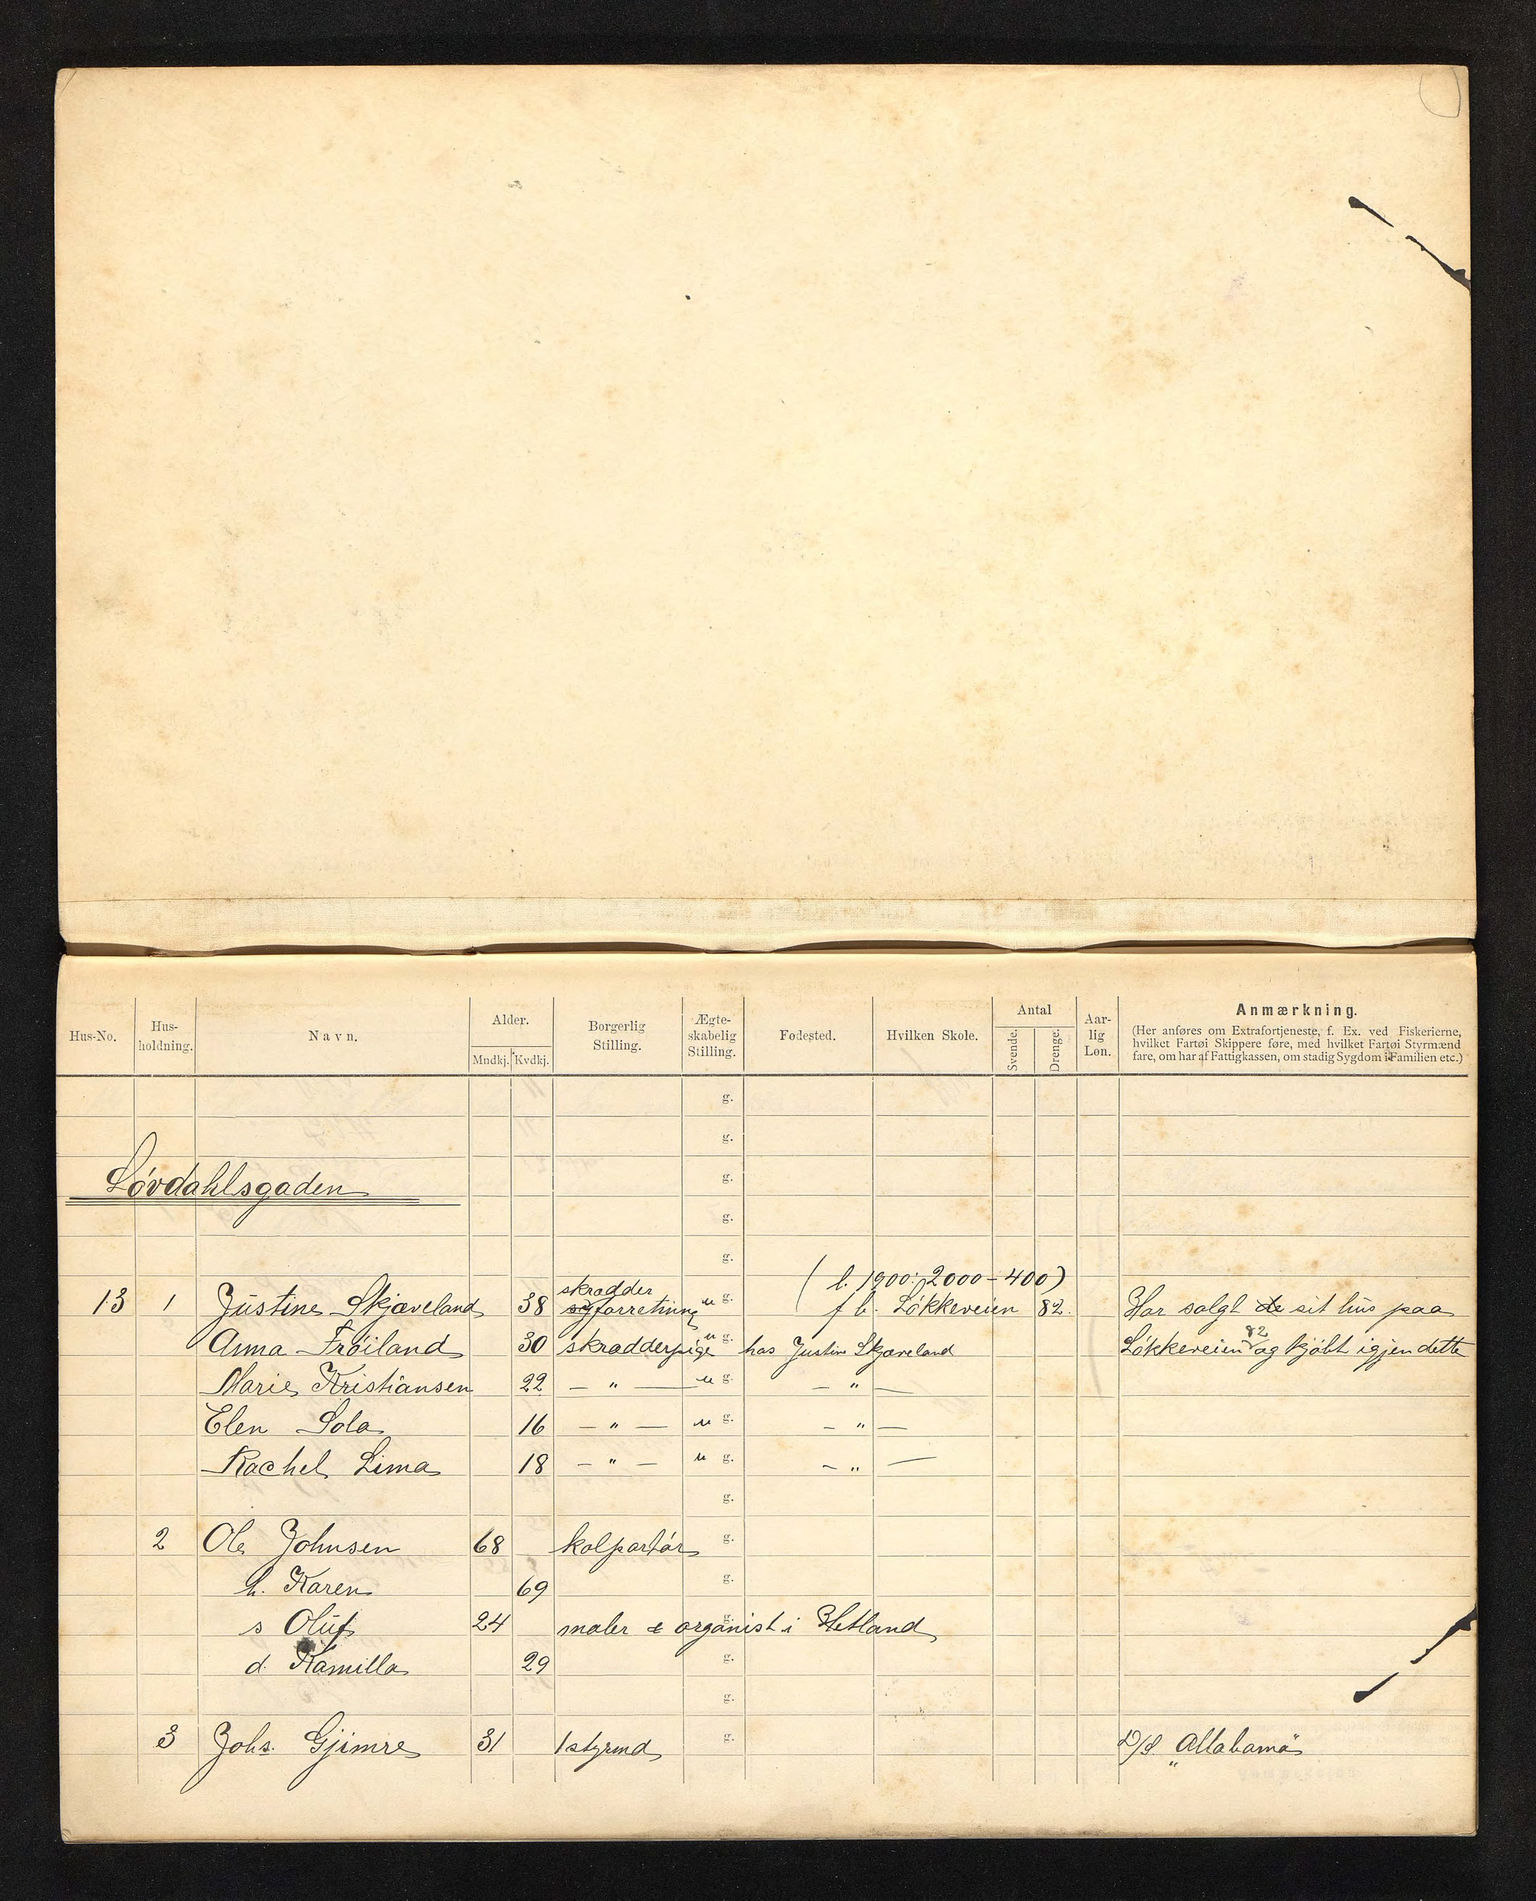 Hus-No. Hus-holdning. Navn. Alder. Mndkj. Kvdkj. Borgerlig Stilling. Ægte-skabelig Stilling. Fødested. Hvilken Skole. Antal Svende. Drenge. Aar-lig Løn. Anmærkning.
(Her anføres om Extrafortjeneste, f. Ex. ved Fiskerierne,
hvilket Fartøi Skippere føre, med hvilket Fartøi Styrmænd
fare, om har af Fattigkassen, om stadig Sygdom i Familien etc.)
g.
g.
Løvdahlsgaden g.
g.
g.
skrædder ( l. 1900: 2000 - 400)
13 1 Justine Skjæveland 38 syforretning u g. f b. Løkkeveien 82. Har solgt de sit hus paa
Anna Frøiland 30 skrædderpige u g. hos Justine Skjæveland Løkkeveien 82 og kjøbt igjen dette
Marie Kristiansen 22 — " — u g. — " —
Elen Sola 16 — " — u g. — " —
Rachel Lima 18 — " — u g. — " —
g.
2 Ole Johnsen 68 kolportør g.
h. Karen 69 g.
s Oluf 24 maler & organist i Hetland g.
d. Kamilla 29 g.
g.
3 Johs. Gjimre 31 1 styrmd g. D/S "Allabama"